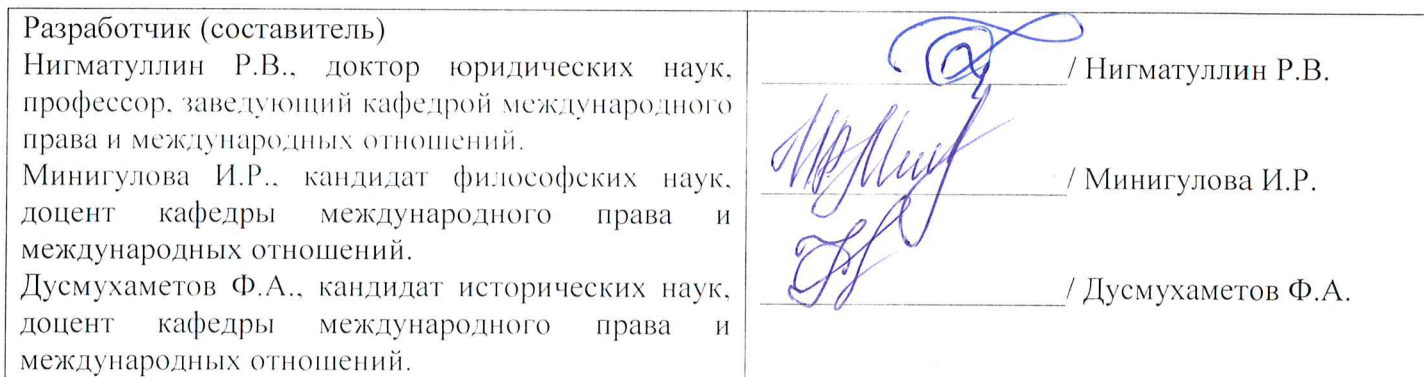 Разработчик (составитель)
Нигматуллин Р.В., доктор юридических наук,
профессор, заведующий кафедрой международного
права и международных отношений.
Минигулова И.Р., кандидат философских наук,
доцент кафедры международного права и
международных отношений.
Дусмухаметов Ф.А., кандидат исторических наук,
доцент кафедры международного права и
международных отношений.
/ Нигматуллин Р.В.
/ Минигулова И.Р.
/ Дусмухаметов Ф.А.